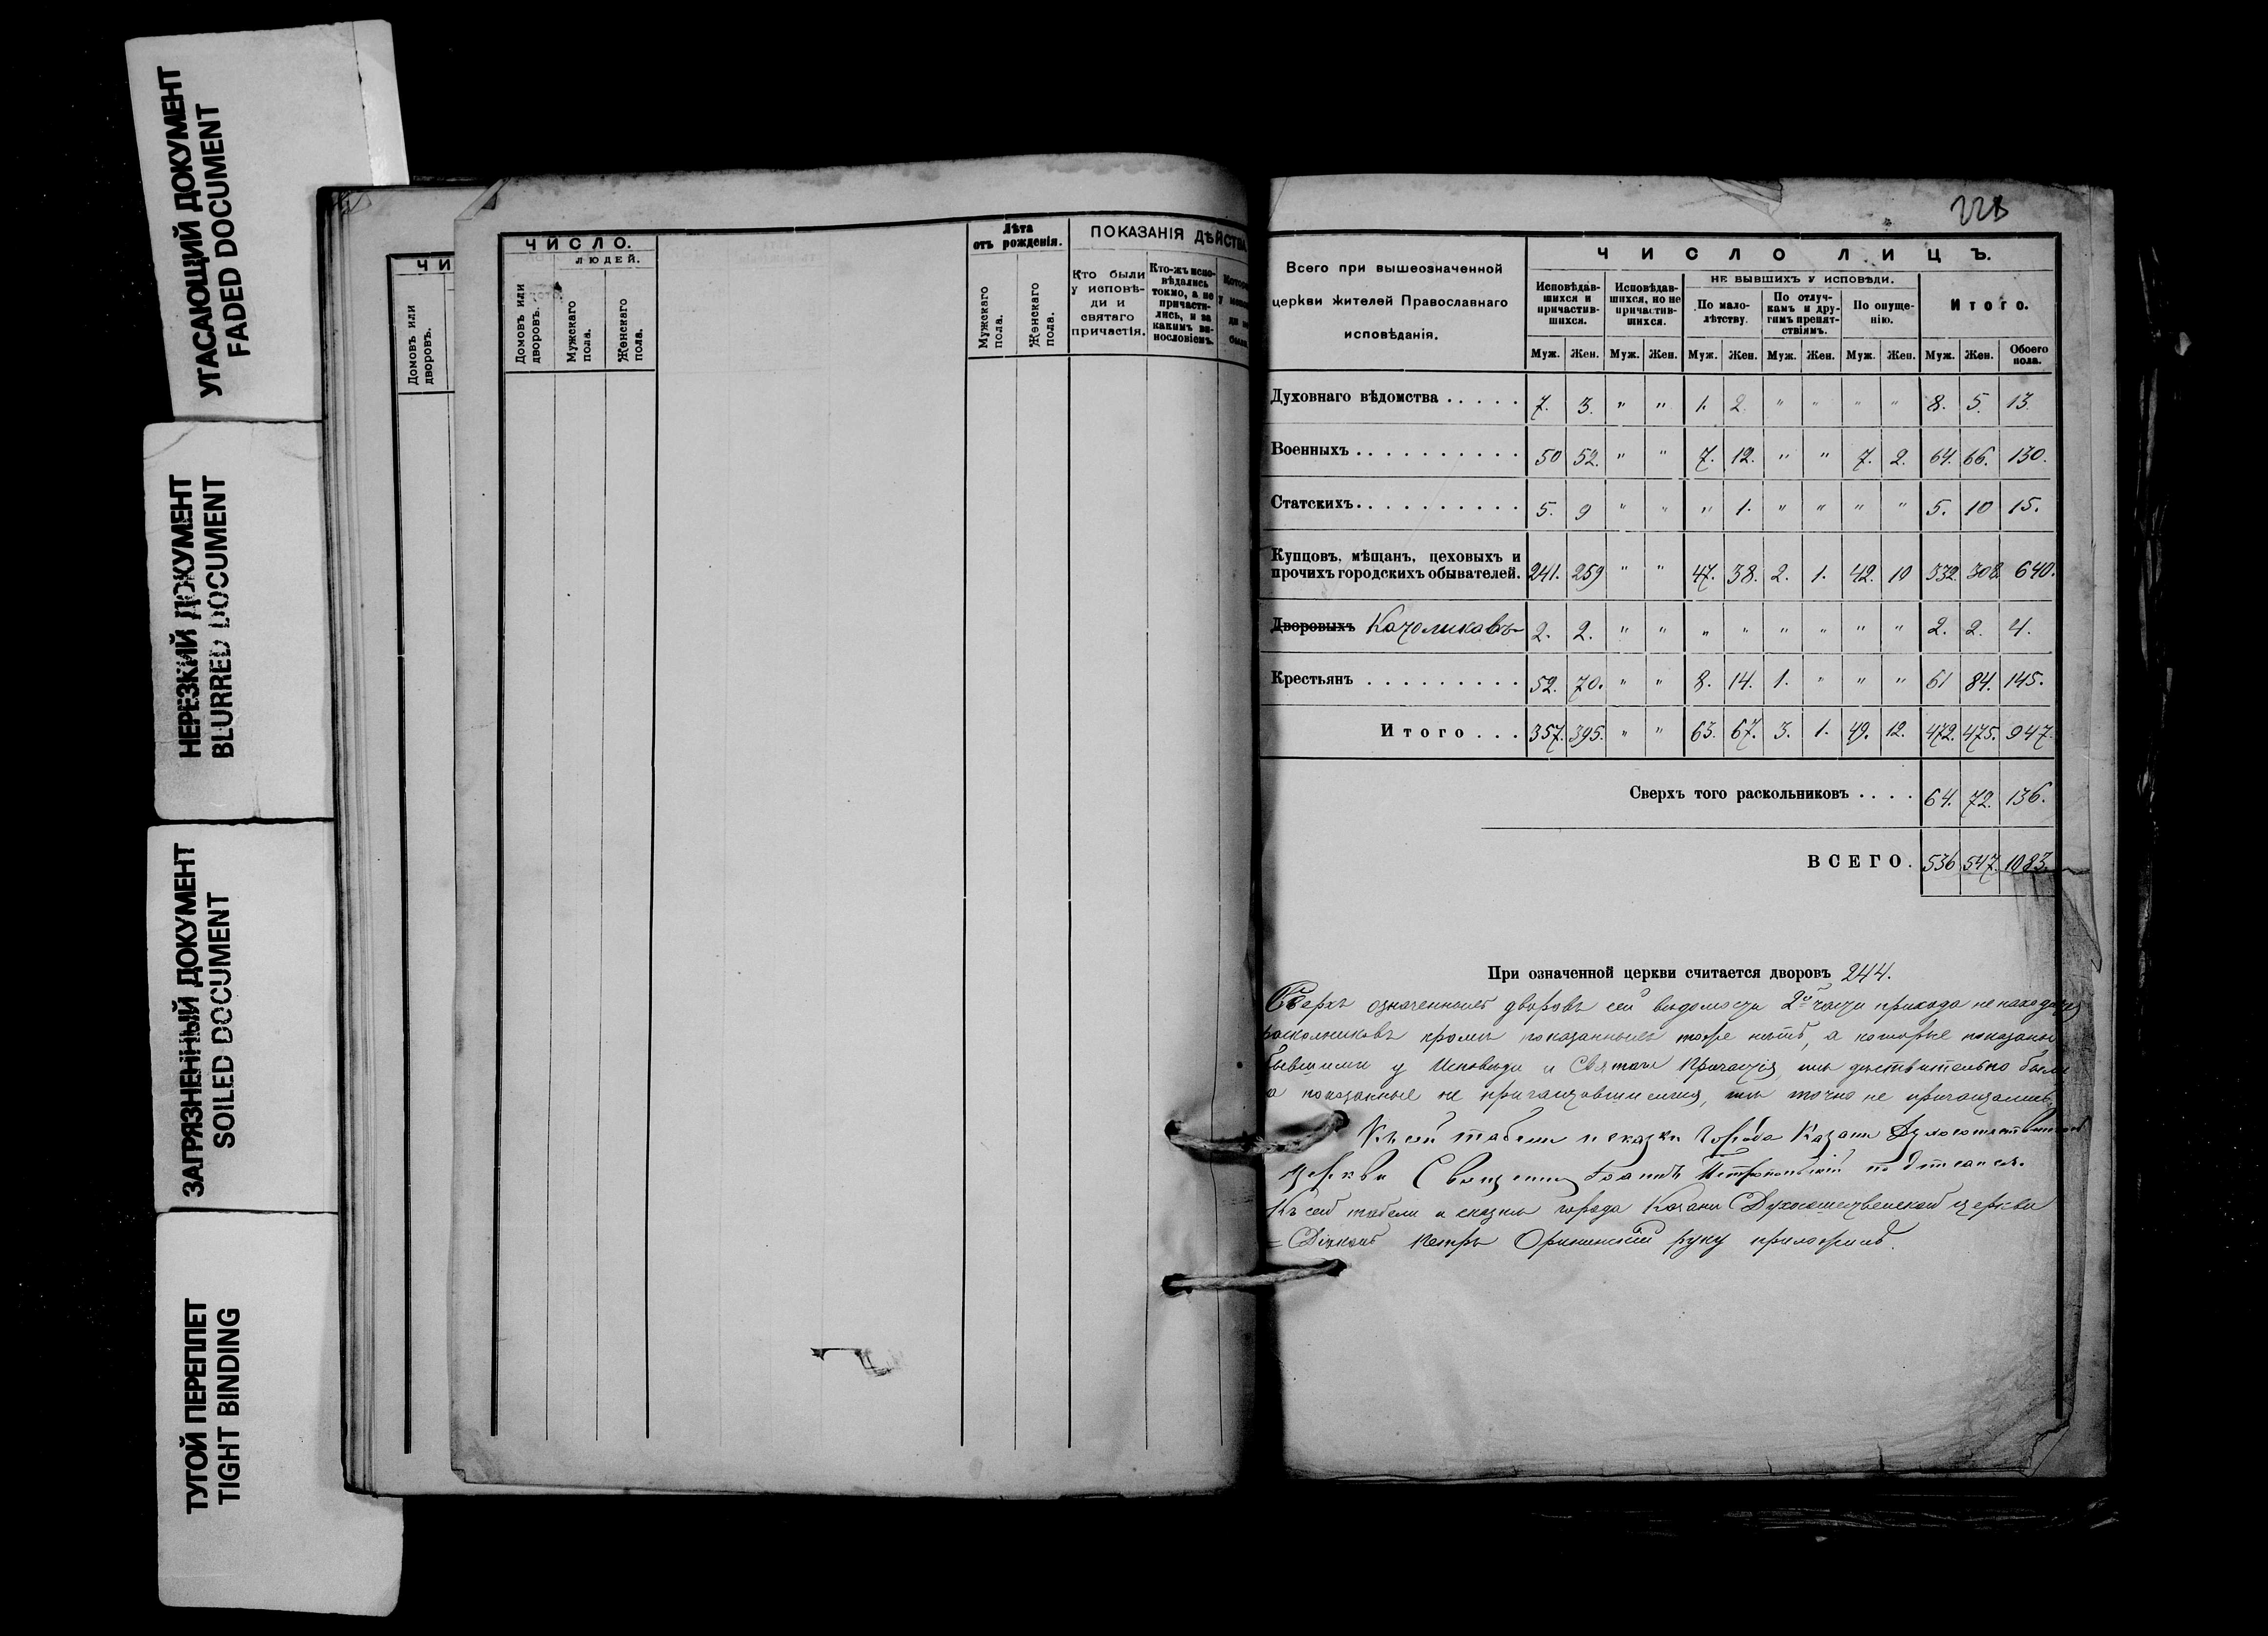 УГАСАЮЩИЙ ДОКУМЕНТ
FADED DOCUMENT
НЕРЕЗКИЙ ДОКУМЕНТ
BLURRED DOCUMENT
ЗАГРЯЗНЕННЫЙ ДОКУМЕНТ
SOILED DOCUMENT
ТУГОЙ ПЕРЕПЛЕТ
TIGHT BINDING
ЧИ
Домовъ или
дворовъ.
ЧИСЛО.
ЛЮДЕЙ.
Домовъ или
дворовъ.
Мужскаго
пола.
Женскаго
пола.
Лѣта
отъ рожденія.
Мужскаго
пола.
Женскаго
пола.
ПОКАЗАНІЯ ДѢЙСТВА
Кто были
у исповѣ-
ди и
святаго
причастія.
Кто-жъ испо-
вѣдались
токмо, а не
причасти-
лись, и за
какимъ ви-
нословіемъ.
228
Всего при вышеозначенной
церкви жителей Православнаго
исповѣданія.
ЧИСЛО ЛИЦЪ.
Исповѣдав-
шихся и
причастив-
шихся.
Исповѣдав-
шихся, но не
причастив-
шихся.
НЕ БЫВШИХЪ У ИСПОВѢДИ.
По мало-
лѣтству.
По отлуч-
камъ и дру-
гимъ препят-
ствіямъ.
По опуще-
нію.
Итого.
Муж. Жен. Муж. Жен. Муж. Жен. Муж. Жен. Муж. Жен. Муж. Жен. Обоего пола.
Духовнаго вѣдомства . . . . . 7. 3. " " 1. 2. " " " " 8. 5. 13.
Военныхъ . . . . . . . . . . 50 52. " " 7. 12. " " 7. 2. 64. 66. 130.
Статскихъ. . . . . . . . . . 5. 9 " " " 1. " " " " 5. 10 15.
Купцовъ, мѣщанъ, цеховыхъ и
прочихъ городскихъ обывателей. 241. 259 " " 47. 38. 2. 1. 42. 10 332. 308. 640.
Дворовыхъ Католиковъ 2. 2. " " " " " " " " 2. 2. 4.
Крестьянъ . . . . . . . . . 52. 70. " " 8. 14. 1. " " " 61 84. 145.
Итого . . . 357. 395. " " 63. 67. 3. 1. 49. 12. 472. 475. 947.
Сверхъ того раскольниковъ . . . . 64. 72. 136.
ВСЕГО. 536 547. 1083.
При означенной церкви считается дворовъ 244.
Сверхъ означенныхъ дворовъ сей вѣдомости 2й части прихода не находится
раскольниковъ кромѣ показанныхъ тоже нѣтъ, а которые показаны
бывшими у Исповѣди и Святаго Причастія, тѣ дѣйствительно были
а показанные не причащавшимися, тѣ точно не причащались.
Къ сей табели и сказкѣ города Казани Духосошественской
церкви Священникъ Іоаннъ подписался.
Къ сей табели и сказкѣ города Казани Духосошественской церкви
= Діаконъ Петръ руку приложилъ.